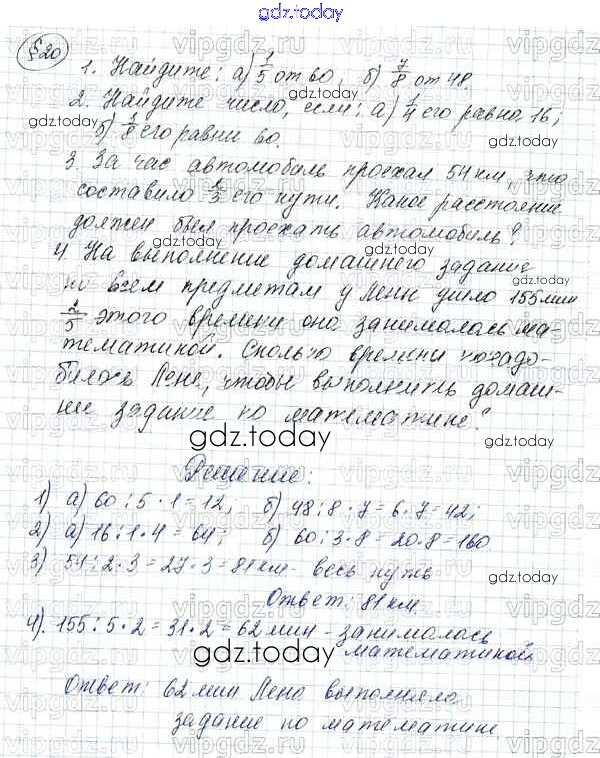 gdz.today
§20
1. Найдите: а) 1/5 от 60; б) 7/8 от 48.
2. Найдите число, если: а) 1/4 его равна 16;
б) 3/8 его равни 60.
3. За час автомобиль проехал 54 км, это
составило 2/3 его пути. Какое расстояние
должен был проехать автомобиль?
4 На выполнение домашнего задание
по всем предметам у Лены ушло 155 мин
2/5 этого времени она занималась ма-
тематикой. Сколько времени понадо-
билось Лене, чтобы выполнить домаш-
ние задание по математике?
gdz.today
Решение:
1) а) 60:5·1=12; б) 48:8·7=6·7=42;
2) а) 16:1·4=64; б) 60:3·8=20·8=160.
3) 54:2·3=27·3=81км - весь путь
Ответ: 81 км.
4). 155:5·2=31·2=62 мин - занималась
математикой
gdz.today
Ответ: 62 мин Лена выполняла
задание по математике